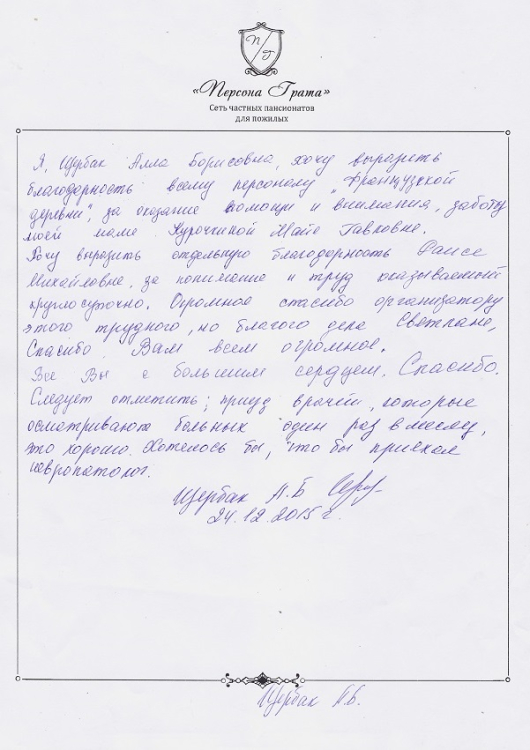 П/Г
«Персона Грата»
Сеть частных пансионатов
для пожилых
Я, Щербак Алла Борисовна, хочу выразить
благодарность всему персоналу „Французской
деревни", за оказание помощи и внимания, заботу
моей маме Курочкиной Майе Павловне.
Хочу выразить отдельную благодарность Раисе
Михайловне, за понимание и труд оказываемый
круглосуточно. Огромное спасибо организатору
этого трудного, но благого дела Светлане,
Спасибо Вам всем огромное.
Все Вы с большим сердцем. Спасибо.
Следует отметить; приезд врачей, которые
осматривают больных один раз в месяц,
это хорошо. Хотелось бы, что бы приехал
невропатолог.
Щербак А.Б
24.12.2015г.
Щербак А.Б.